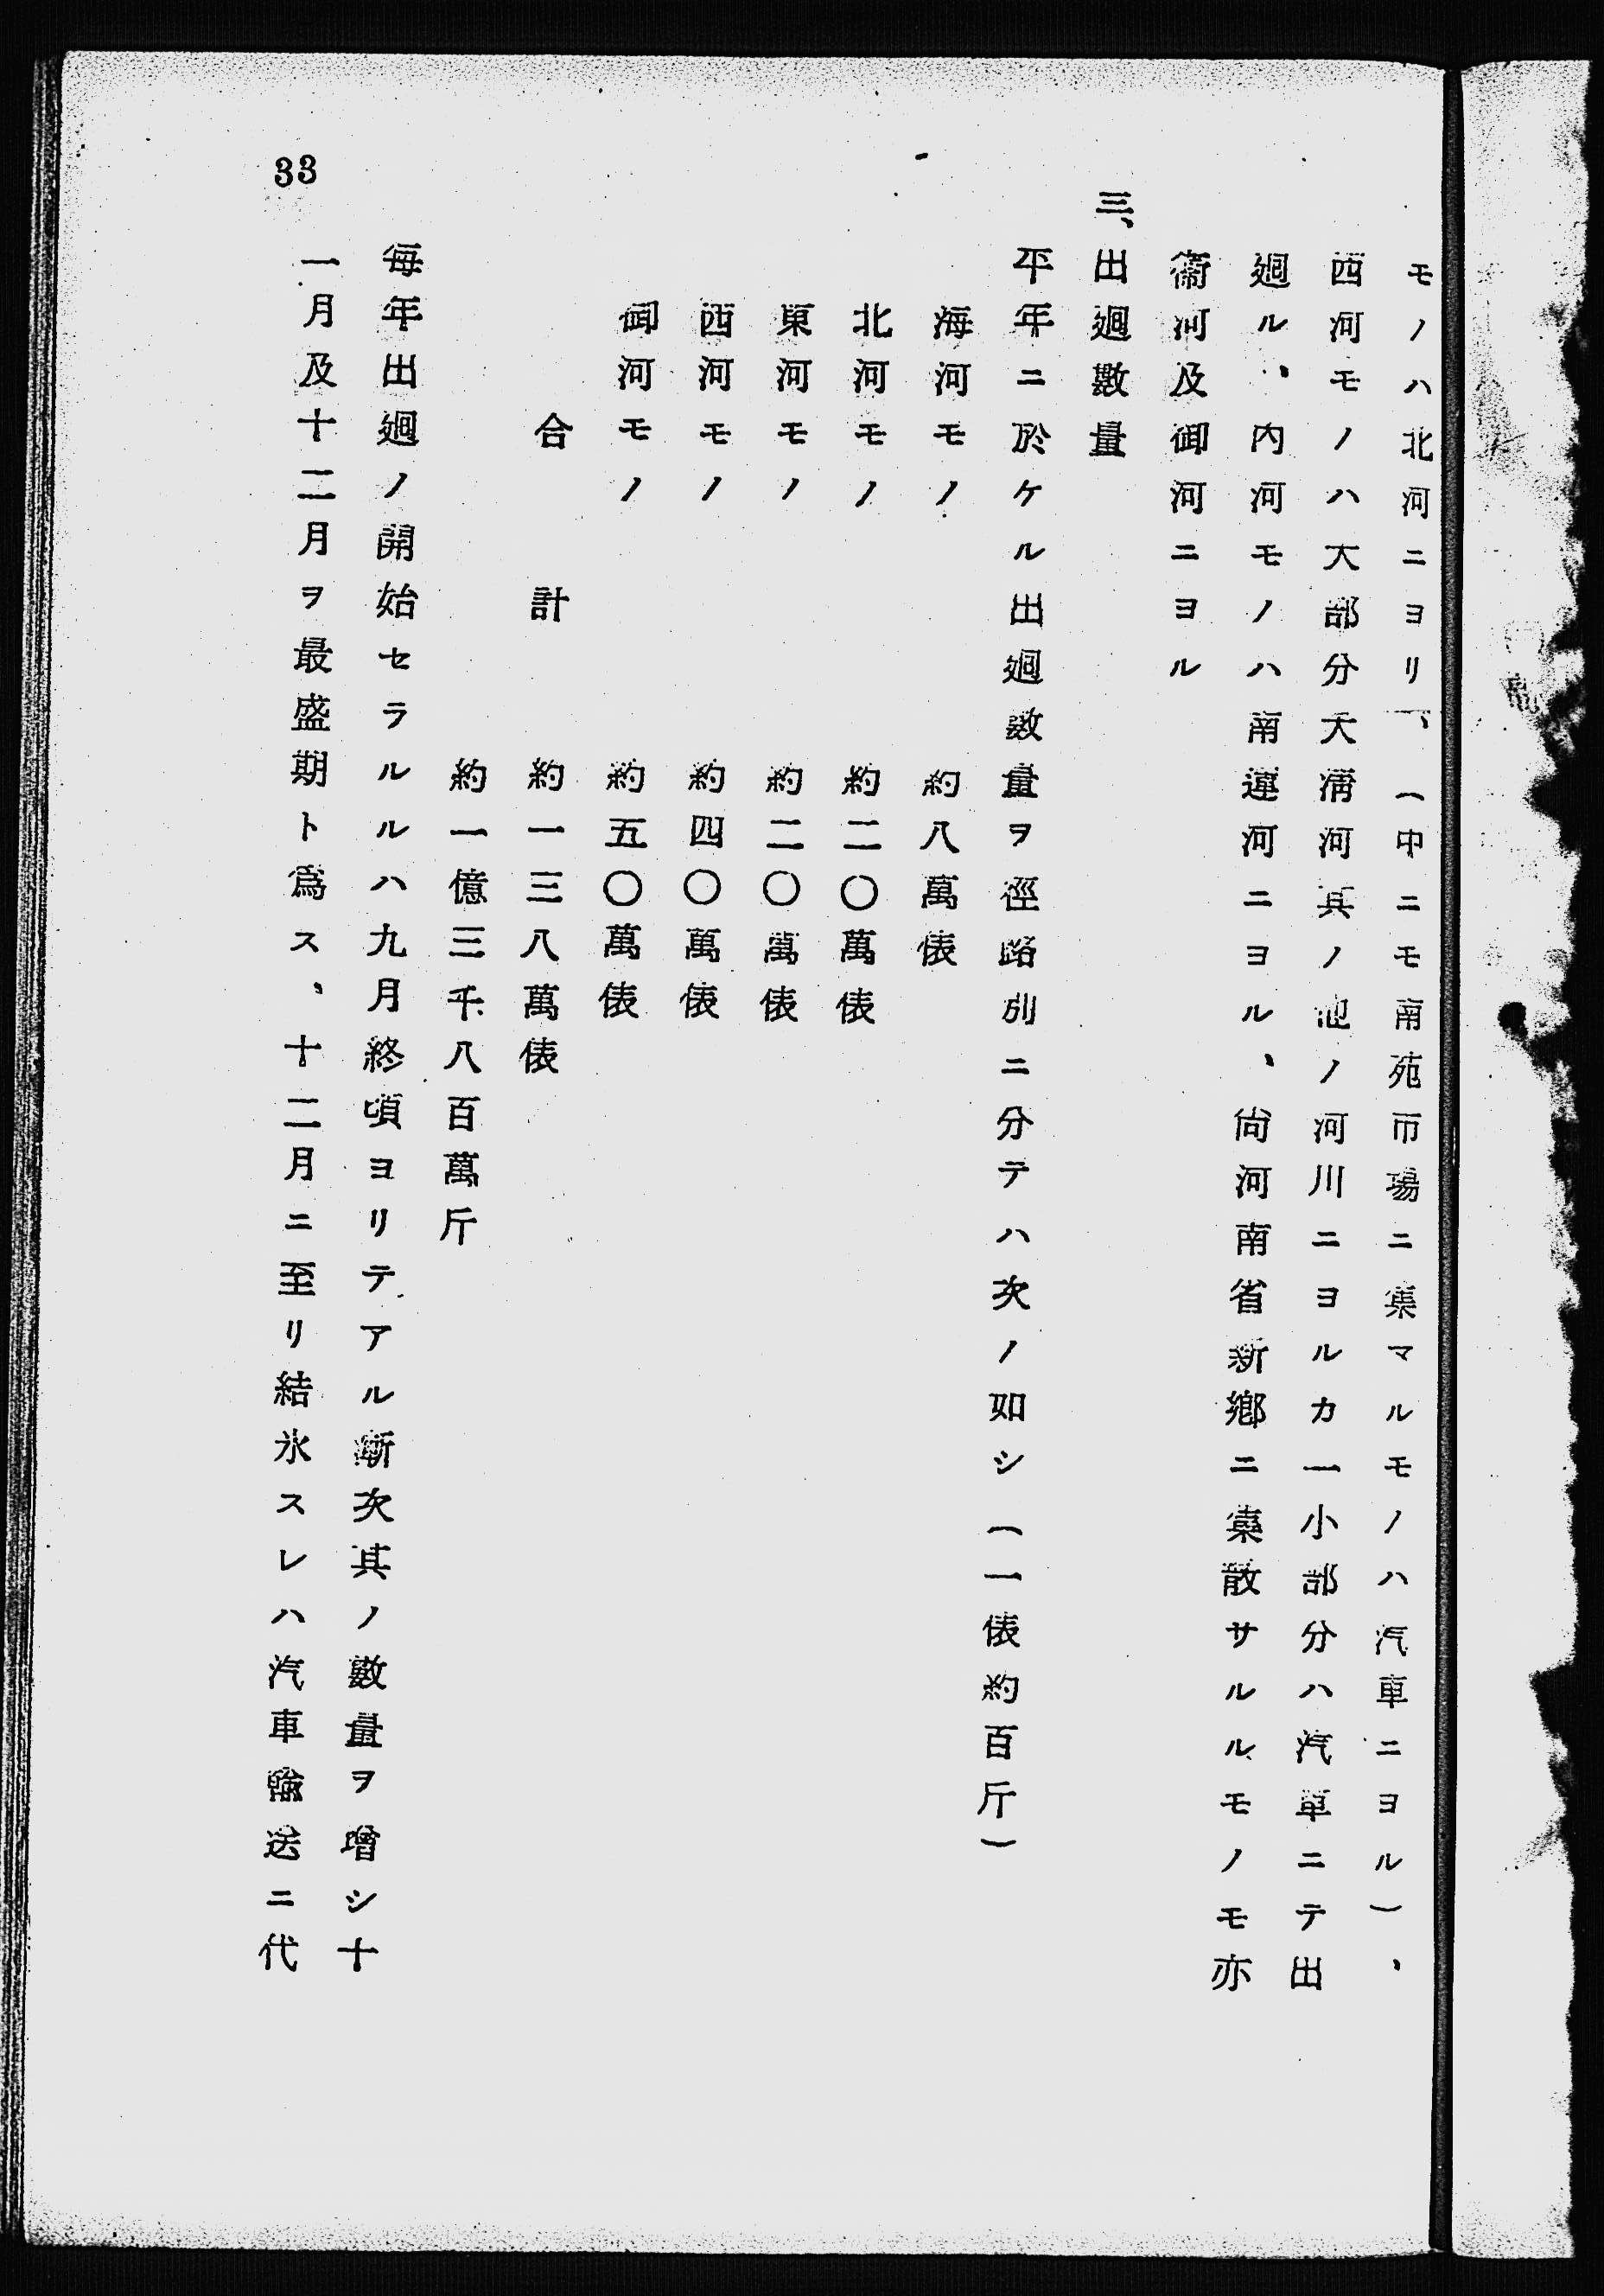 モノハ北河ニヨリ、(中ニモ南苑市場ニ集マルモノハ汽車ニヨル)、
西河モノハ大部分大淸河其ノ他ノ河川ニヨルカ一小部分ハ汽車ニテ出
廻ル、內河モノハ南運河ニヨル、尙河南省新鄕ニ集散サルルモノモ亦
衞河及御河ニヨル
三、出廻數量
平年ニ於ケル出廻數量ヲ徑路別ニ分テハ次ノ如シ(一俵約百斤)
海河モノ 約八萬俵
北河モノ 約二〇萬俵
東河モノ 約二〇萬俵
西河モノ 約四〇萬俵
御河モノ 約五〇萬俵
合計 約一三八萬俵
約一億三千八百萬斤
每年出廻ノ開始セラルルハ九月終頃ヨリテアル漸次其ノ數量ヲ增シ十
一月及十二月ヲ最盛期ト爲ス、十二月ニ至リ結氷スレハ汽車輸送ニ代
33